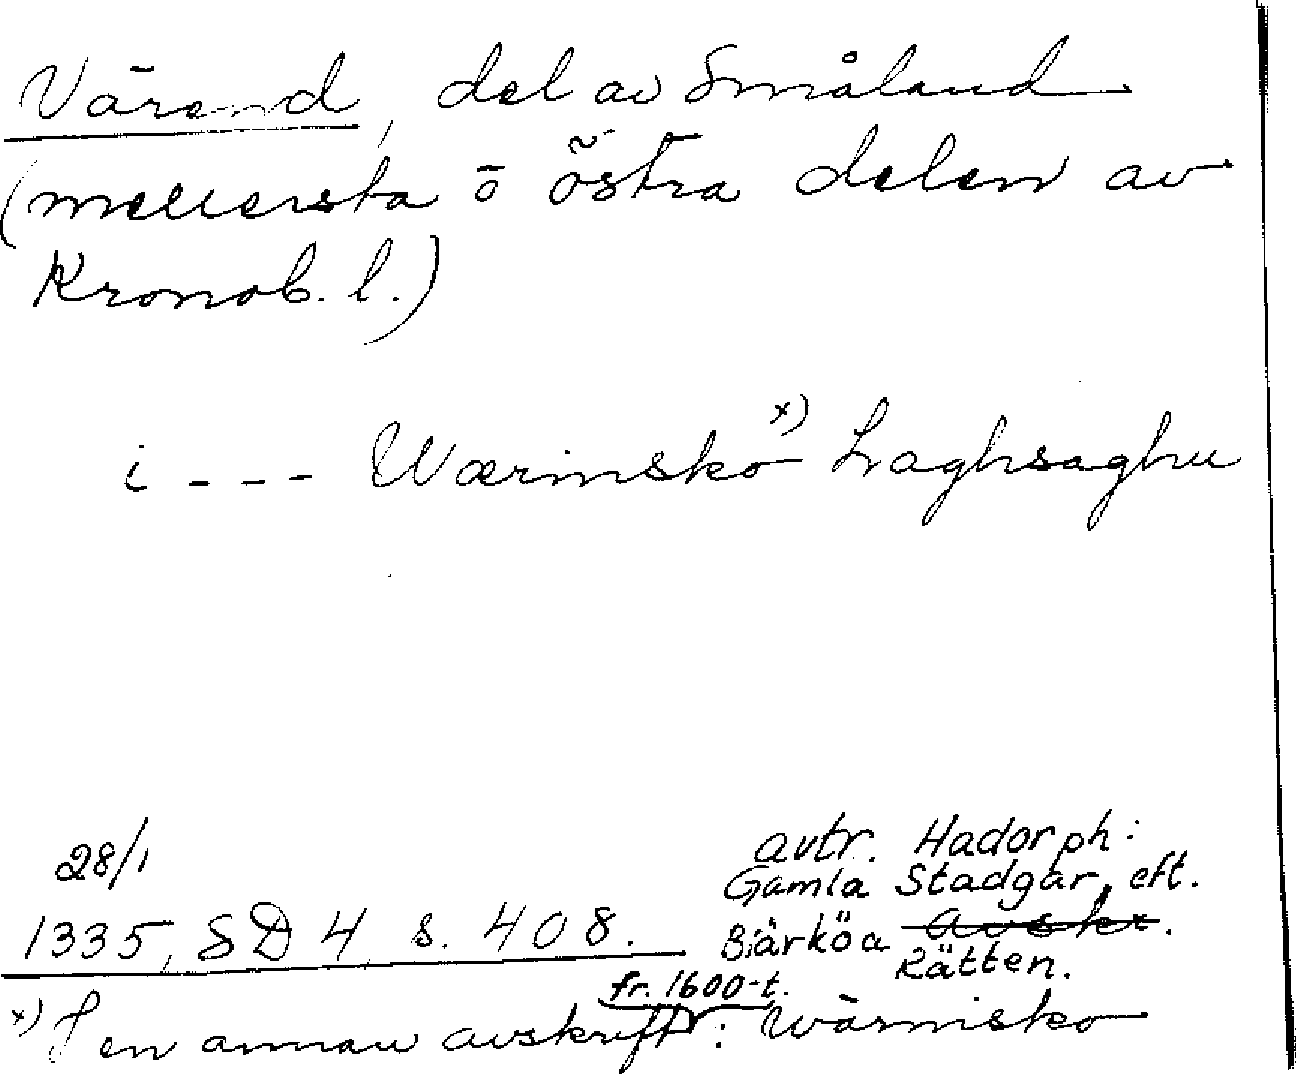 Värend, del av Småland
(mellersta o östra delen av
Kronob. l.)
i - - - Wærinsko x) Laghsaghu
28/1
1335, SD 4 s. 408.
avtr. Hadorph:
Gamla Stadgar, eft.
Biärköa avskr.
Rätten.
x) I en annan avskrift fr. 1600-t. : Wärnisko